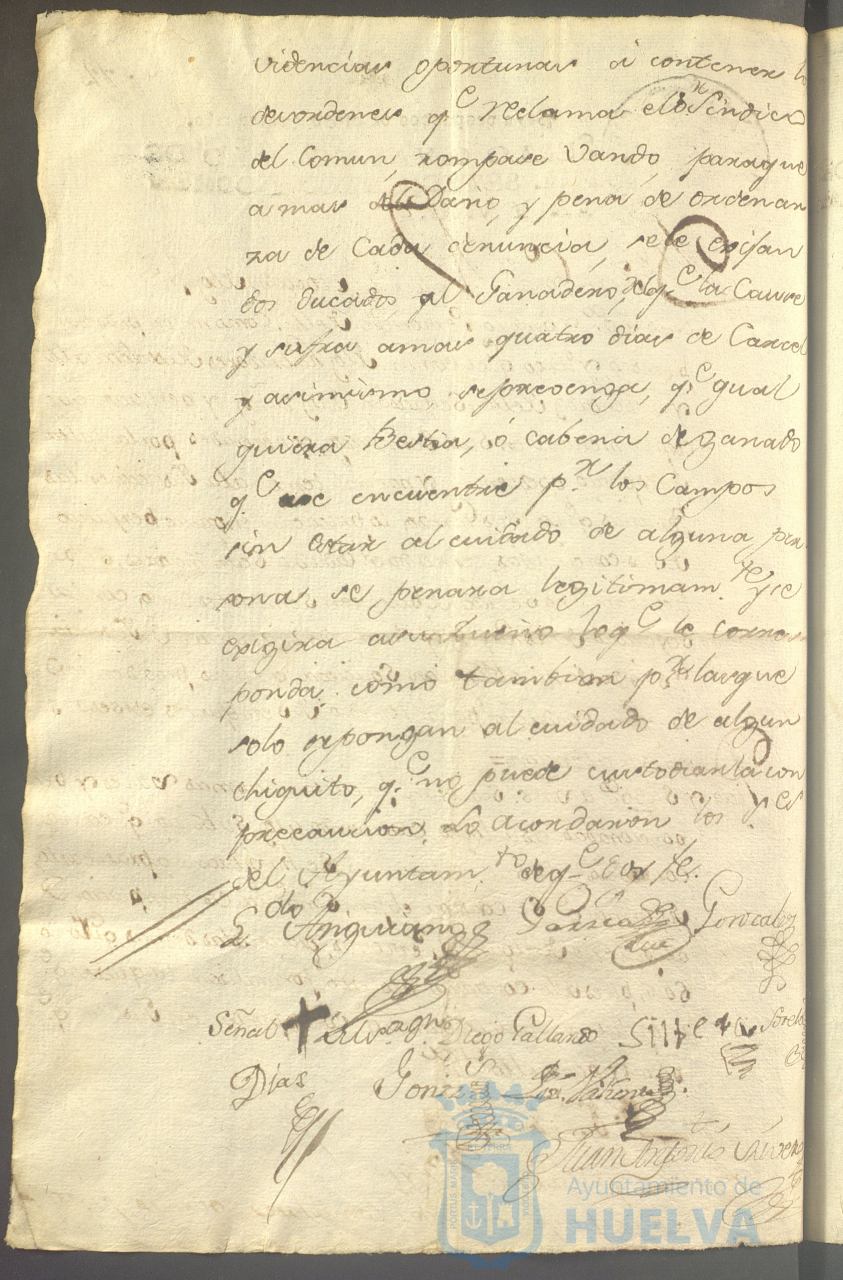 videncias oportunas á contener lo
desordenes qe reclama el Sor Sindico
del Comun, rompase Vando, paraque
amas del Daño, y pena de ordenan
za de Cada denuncia, sele exijan
dos ducados, al Ganadero, de qe la Cause
y sufra amas quatro dias de Carcel
y asimismo seprevenga, qe qual
quiera Bestia, ó cabeza de ganado
qe se encuentre pr los Campos
sin estar al cuidado de alguna per
sona, se penara legitimamte y se
exigira asu Dueño loqe le corres
ponda, como tambien pr lasque
solo expongan al cuidado de algun
chiquito, qe no puede custodiarla con
precausion. Lo acordaron los
del Ayuntamto deqe doy fe.
Ldo Anguiano Garcia Gonzalez
Señal + Diego Gallardo
Dias Gonz
Juan Antonio
Ayuntamiento de
HUELVA